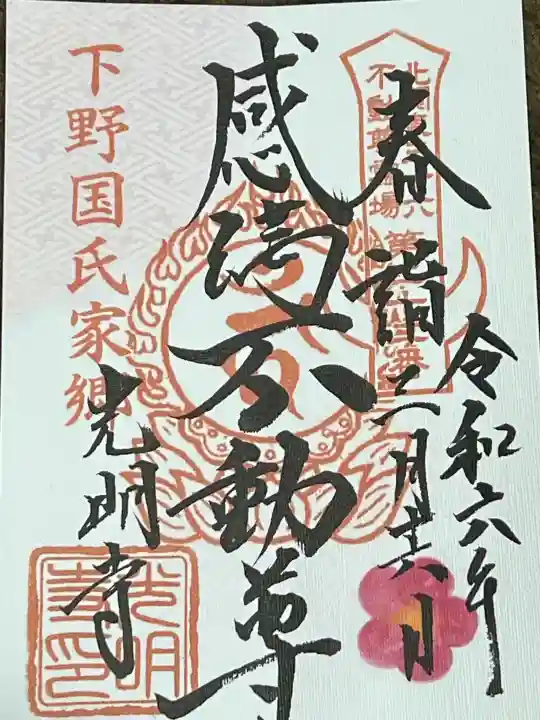 奉詣
令和六年
二月十六日
北関東三十六
不動尊霊場
感満不動尊
下野国氏家郷
光明寺
光明
寺印